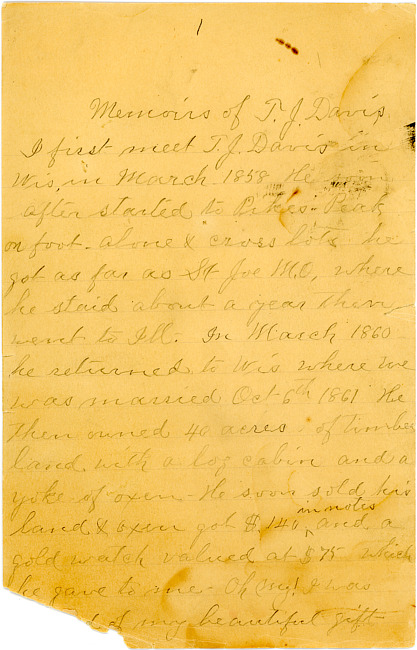 1
Memoirs of T. J. Davis
I first meet T. J. Davis in
Wis, in March 1858 He soon
after started to Pikes-Peak
on foot - alone & cross lots he
got as far as St Joe M.O, where
he staid about a year then
went to Ill. In March 1860
he returned to Wis where we
was married Oct 6th 1861 He
then owned 40 acres of timber
land with a log cabin and a
yoke of oxen - He soon sold his
in notes
land & oxen got $140 and a
gold watch valued at $75 which
he gave to me - Oh my! I was
of my beautiful gift